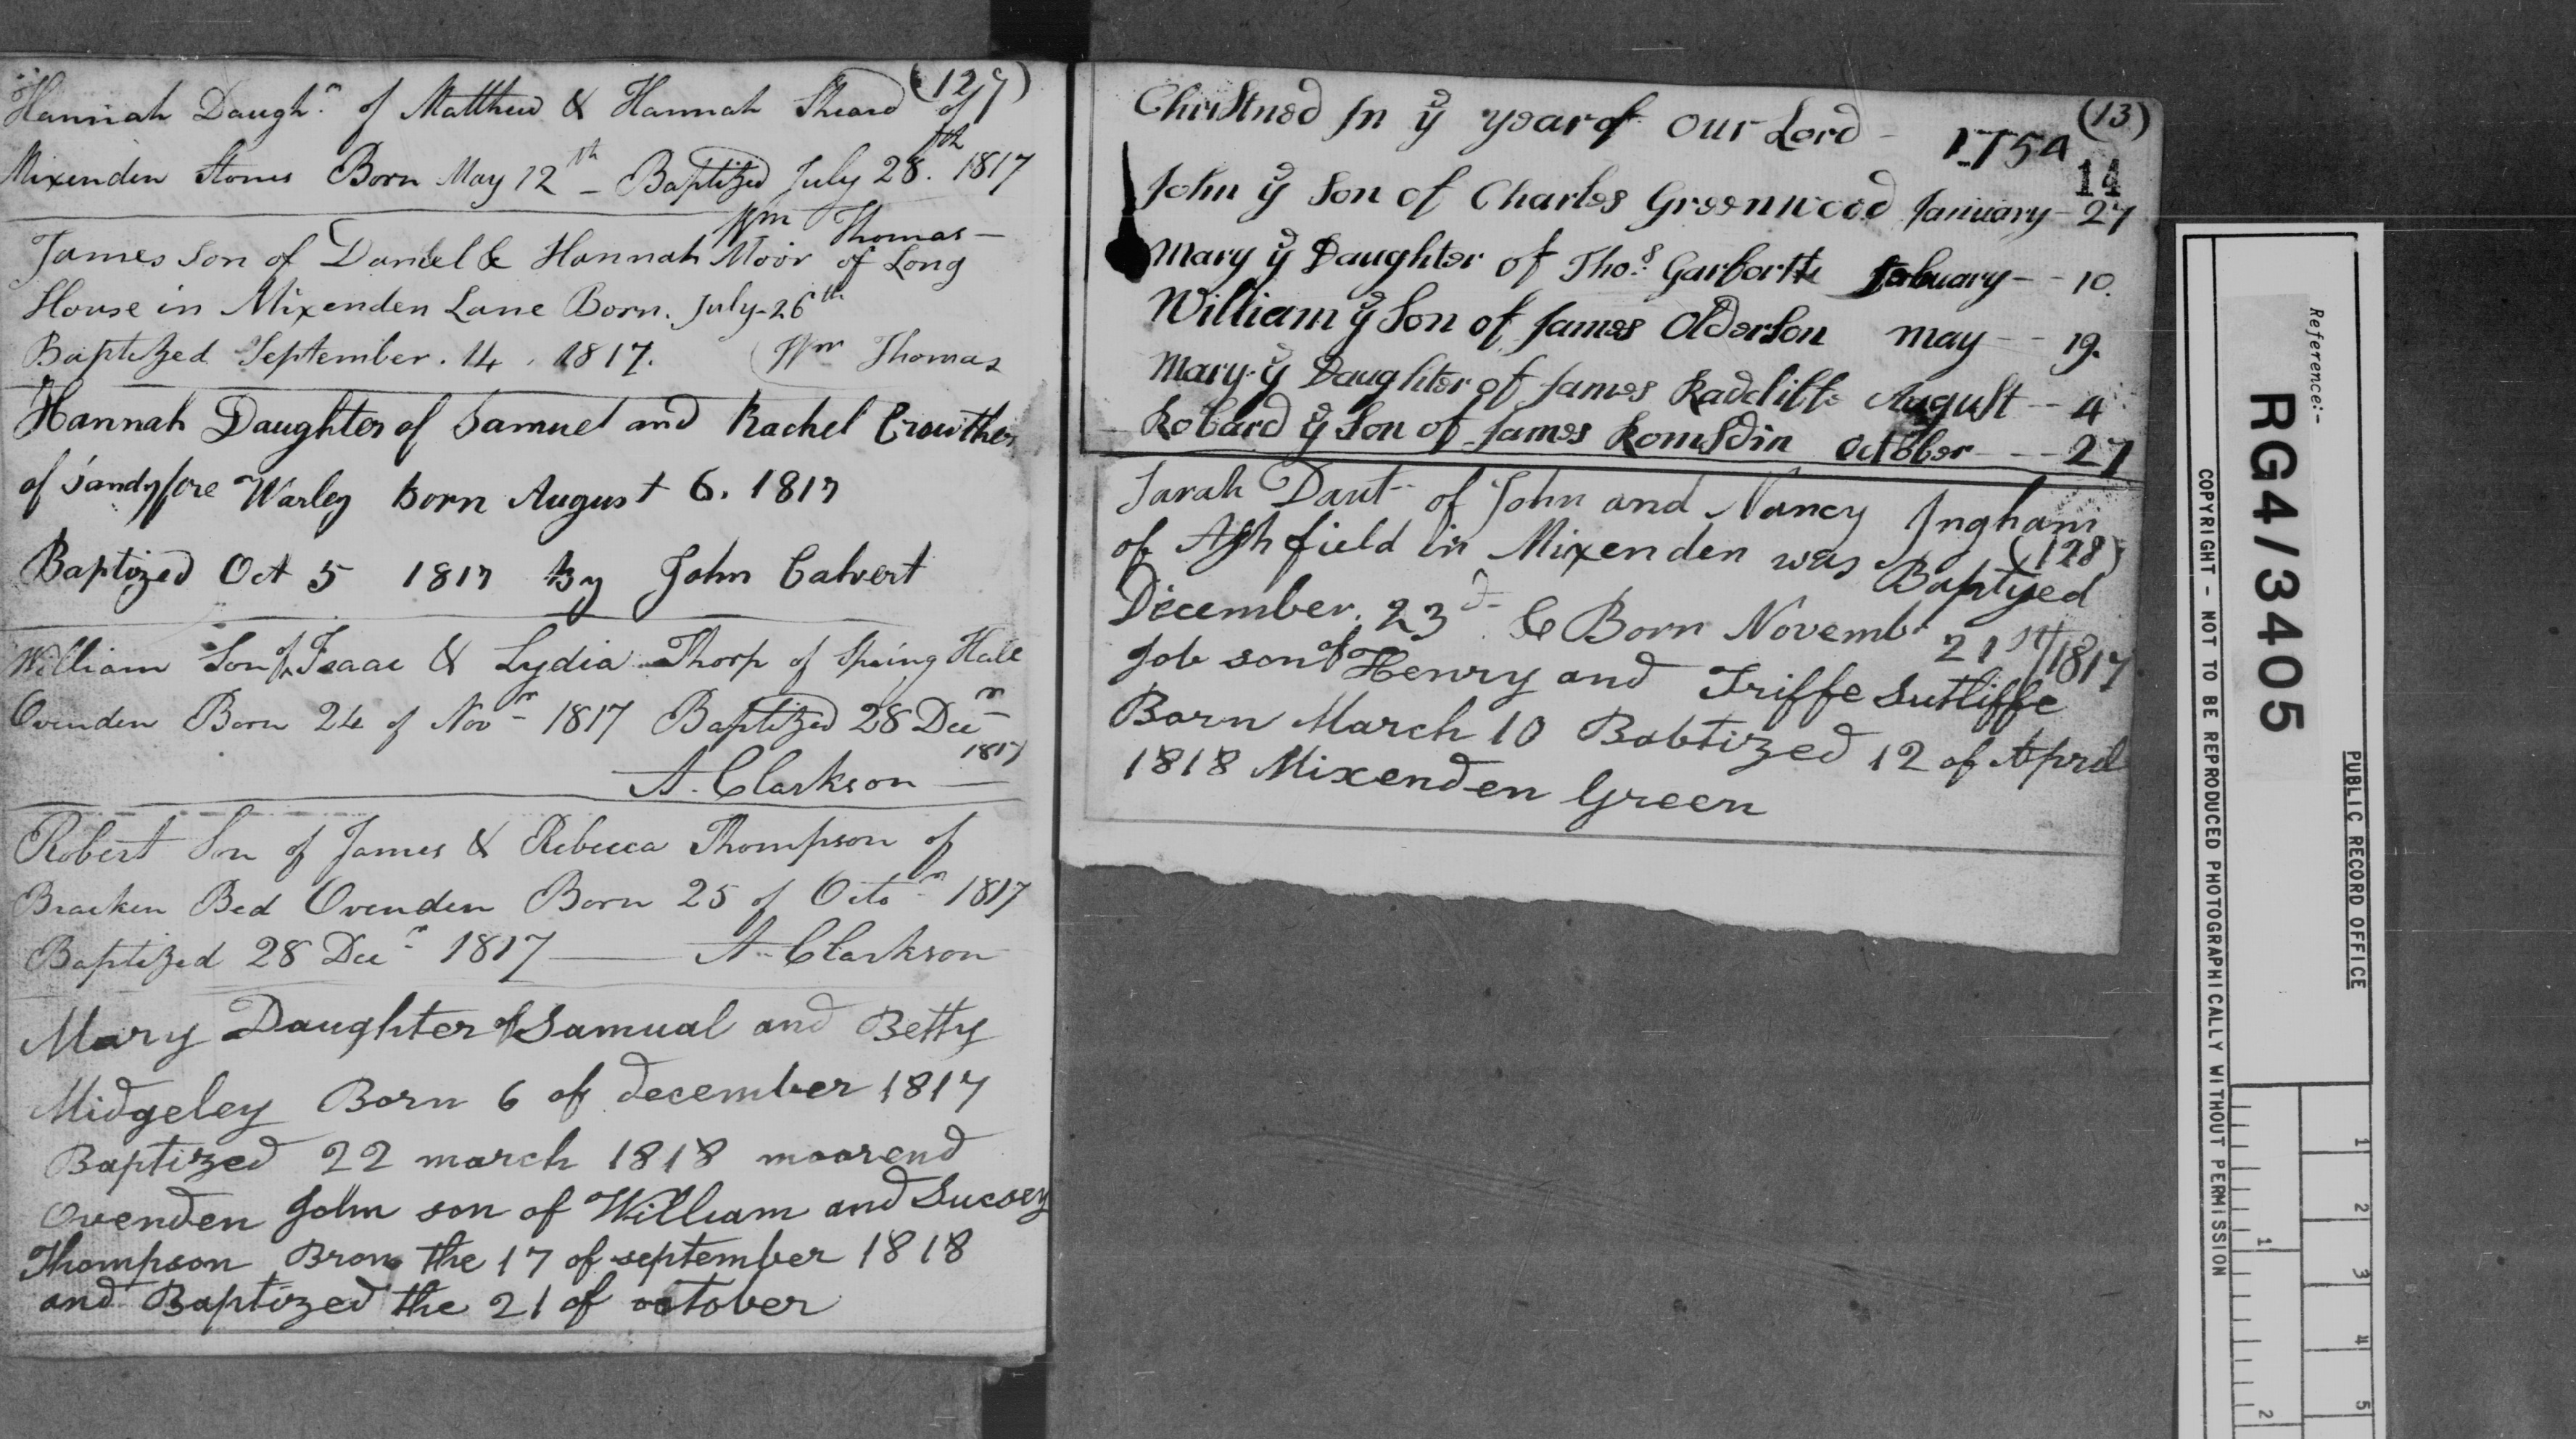 (127)
Hannah Daughr. of Matthew & Hannah Sheard of
Mixenden Stones Born May 12th - Baptized July 28th. 1817
Wm Thomas -
James Son of Daniel & Hannah Moor of Long
House in Mixenden Lane Born. July-26th
Baptized September. 14. 1817. Wm Thomas
Hannah Daughter of Samuel and Rachel Crowther
of Sandyfore Warley Born August 6. 1817
Baptized Oct 5 1817 By John Calvert
William Son of Isaac & Lydia Thorp of Spring Hall
Ovenden Born 24 of Novr 1817 Baptized 28 Decr
1817
A. Clarkson
Robert Son of James & Rebecca Thompson of
Bracken Bed Ovenden Born 25 of Octor 1817
Baptized 28 Decr 1817 — A. Clarkson
Mary Daughter of Samual and Betty
Midgeley Born 6 of december 1817
Baptized 22 march 1818 moorend
Ovenden John son of William and Sucsey
Thompson Bron the 17 of september 1818
and Baptized the 21 of october
(13)
Christned In ye year of Our Lord - 1754
14
John ye Son of Charles Greenwood January - 27
Mary ye Daughter of Thos. Garfortte Febuary - - 10.
William ye Son of James Olderson may - - 19.
Mary ye Daughter of James Radcliffe August - - 4
Robard ye Son of James Romsdin October - - - 27
Sarah Daut- of John and Nancy Ingham
(128)
of Ash field in Mixenden was Baptyed
December. 23d & Born Novembr 21st/1817
Job son of Henry and Triffe Sutliffe
Born March 10 Babtized 12 of April
1818 Mixenden Green
Reference:-
RG4/3405
PUBLIC RECORD OFFICE
COPYRIGHT - NOT TO BE REPRODUCED PHOTOGRAPHICALLY WITHOUT PERMISSION
1 2 3 4 5
1 2